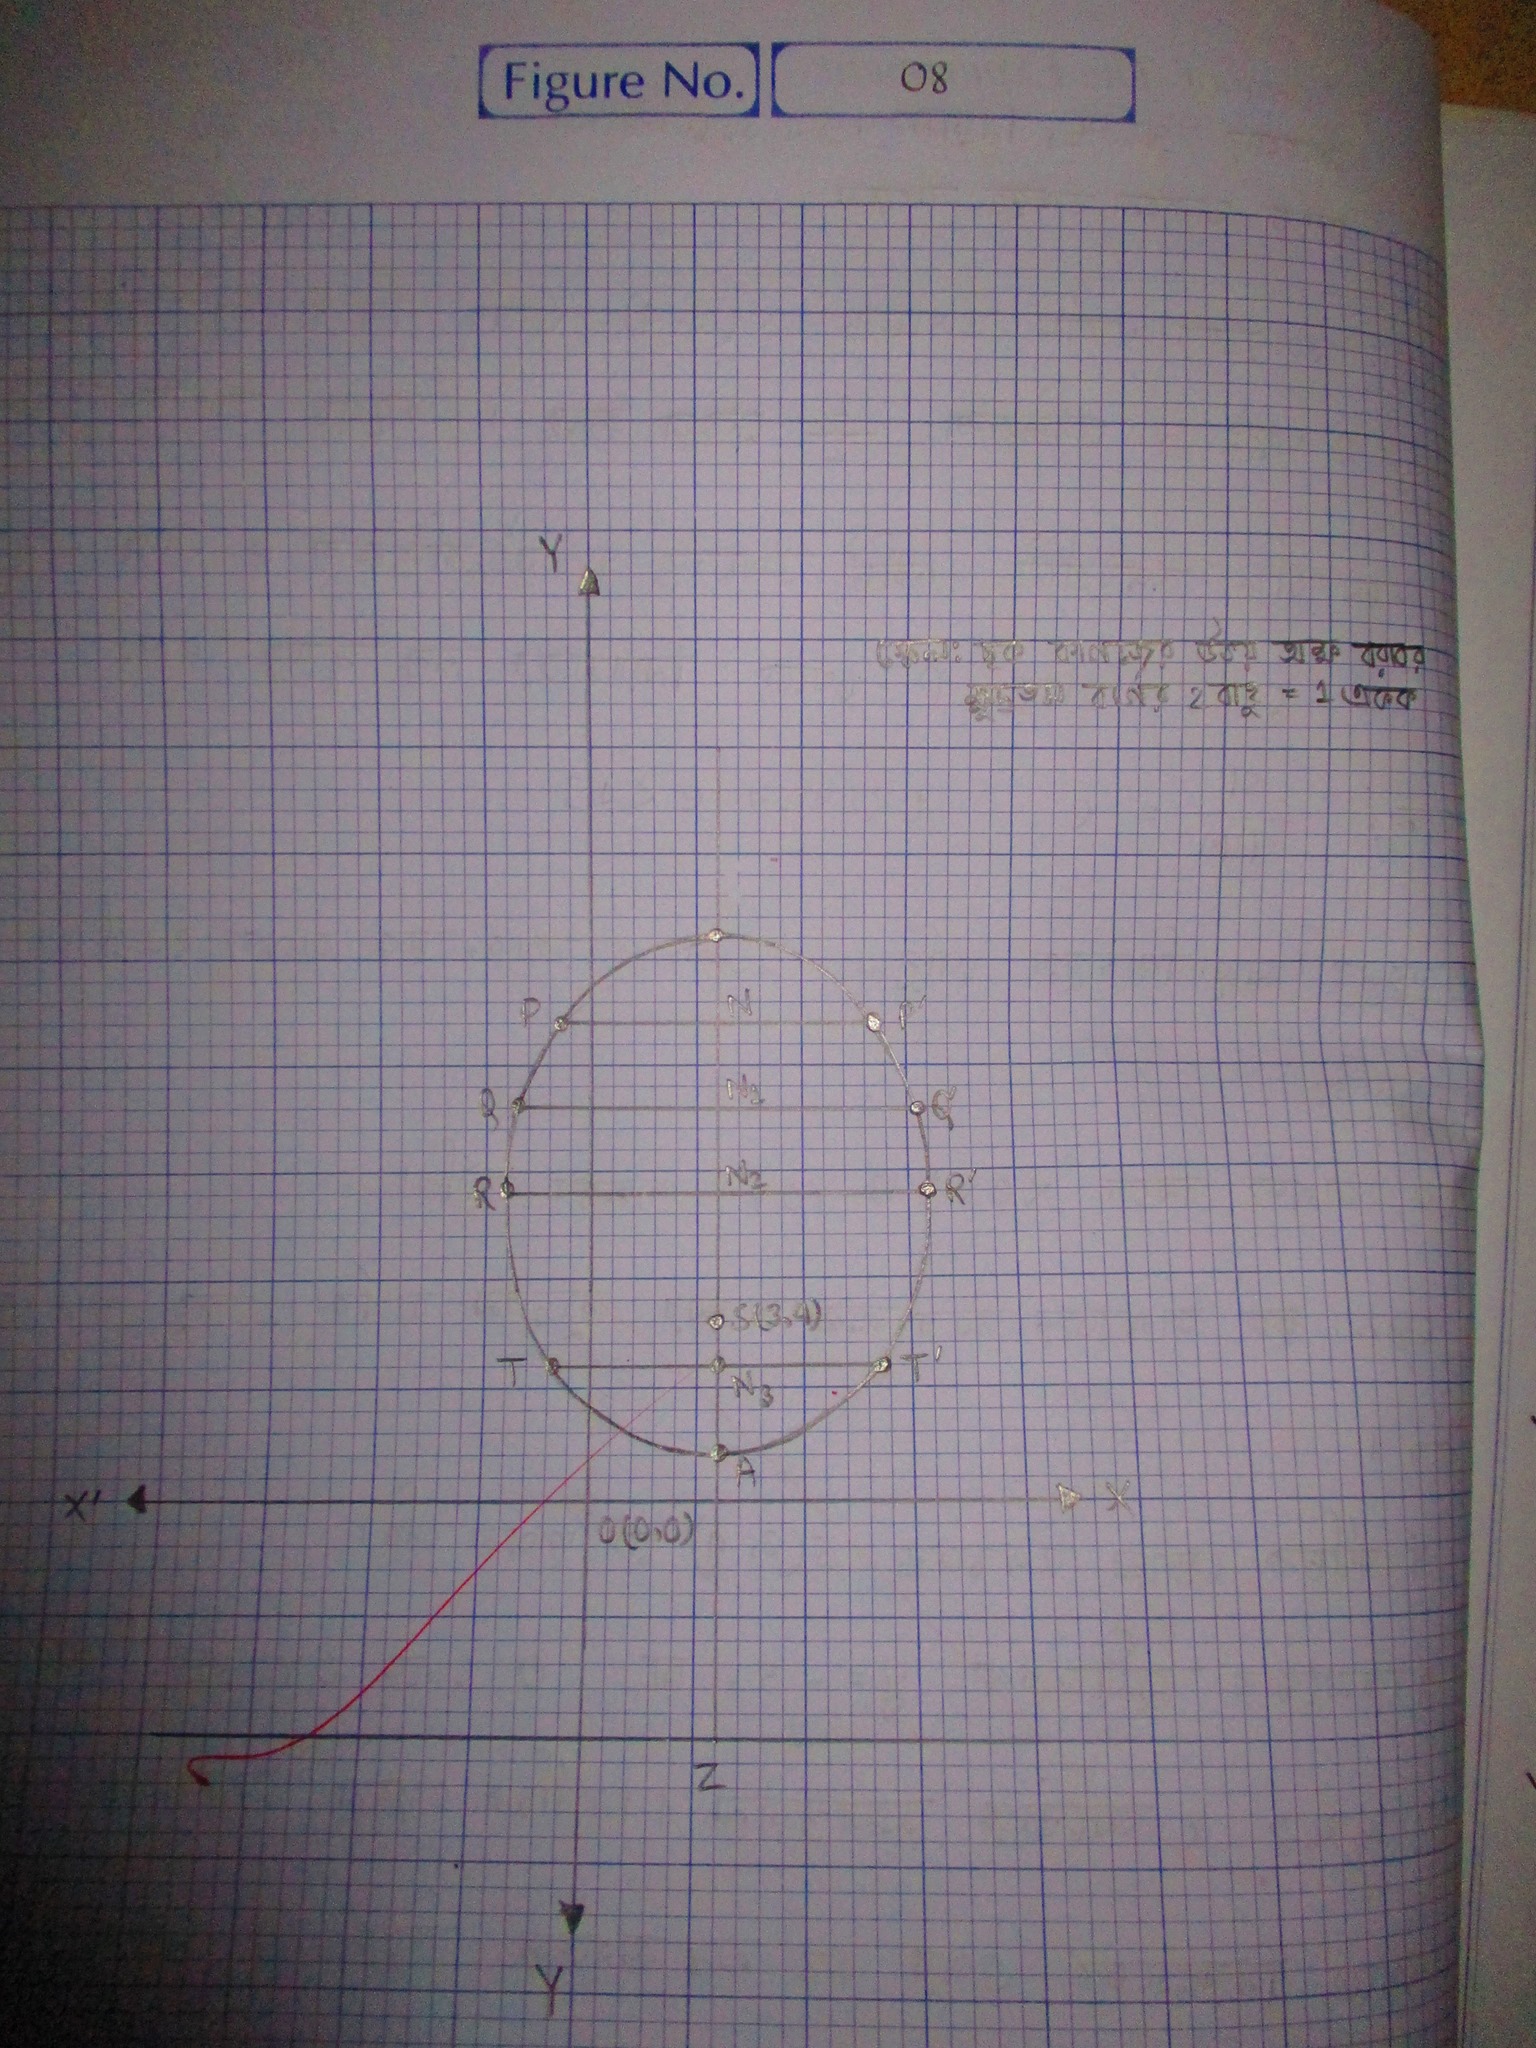 Figure No. 08
Y
স্কেল: ছক কাগজের উভয় অক্ষ বরাবর
ক্ষুদ্রতম বর্গের 2 বাহু = 1 একক
P N P'
Q N₁ Q'
R N₂ R'
S(3,4)
T T'
N₃
A
X' X
O(0,0)
Z
Y